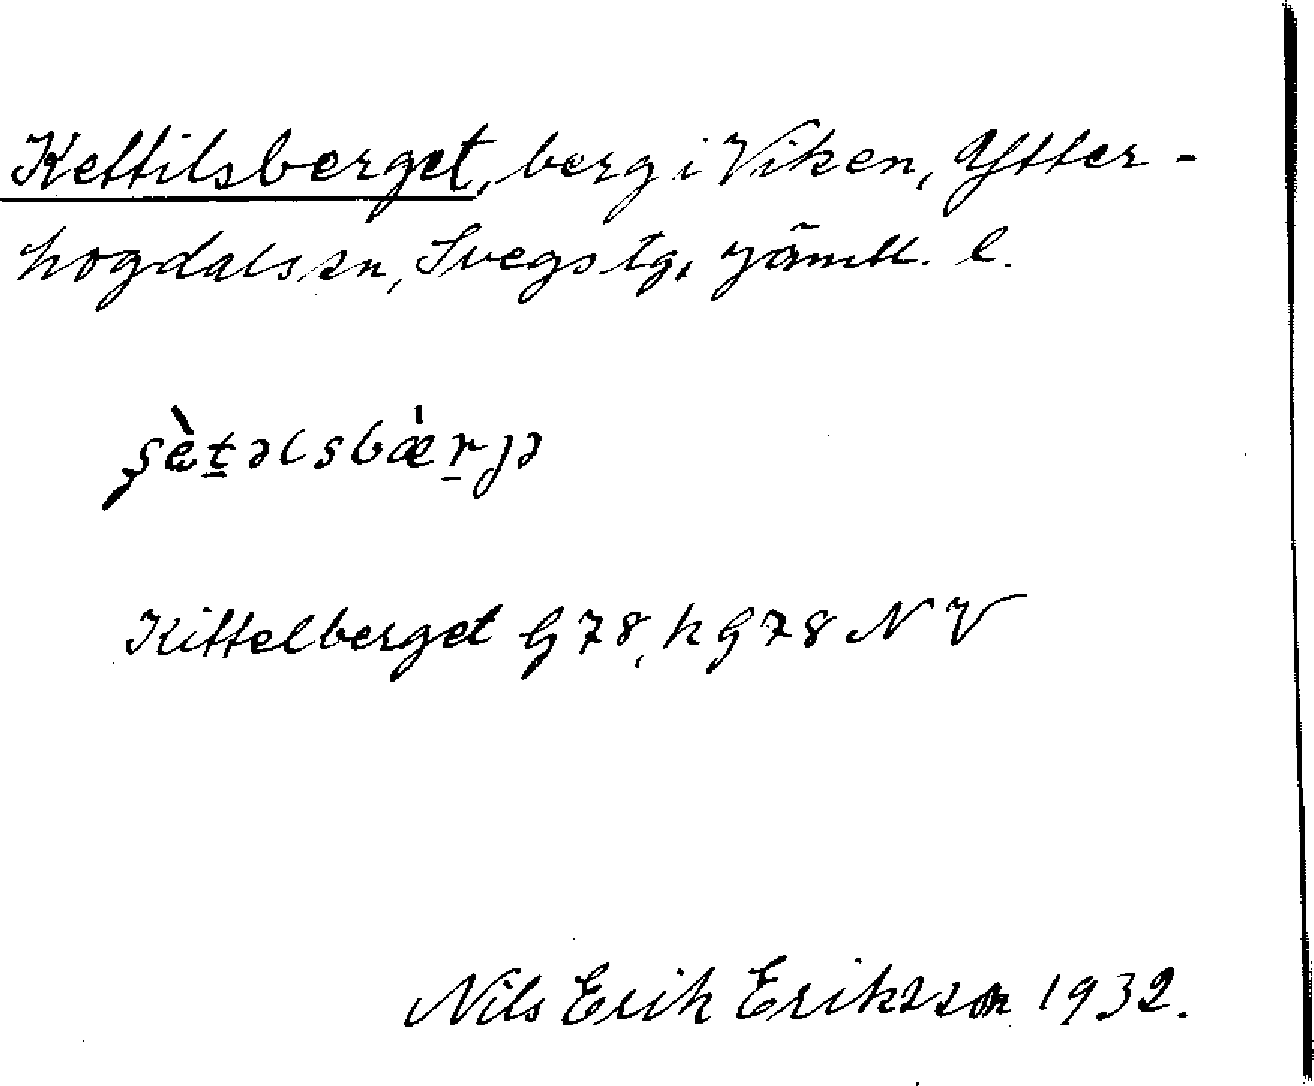 Kettilsberget, berg i Viken, Ytter-
hogdals sn, Svegs tg, Jämtl. l.
ʂèt̠əlsbæ̀r̠jə
Kittelberget G 78, h G 78 NV
Nils Erik Eriksson 1932.